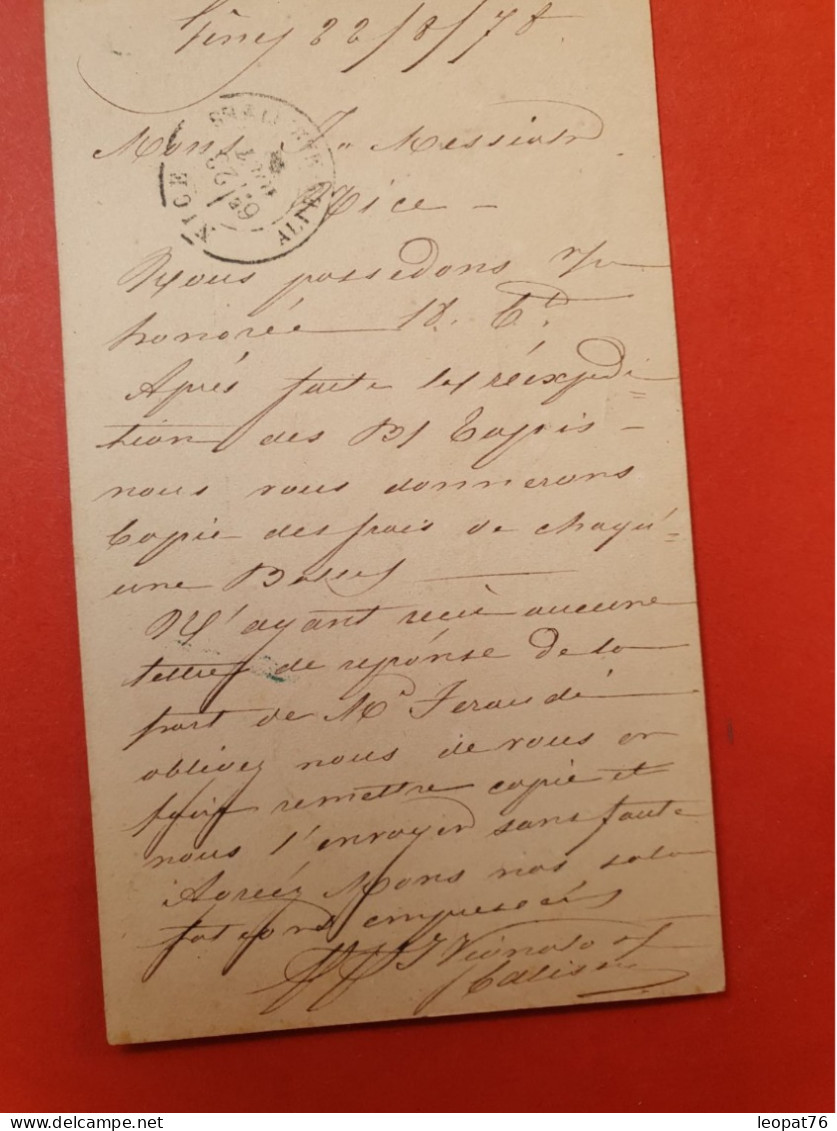 Gênes 22/8/78.
Mons J. Messiah
Nice
NICE
ALPES
Nous possedons v/
honorée 18. Ct.
Après faite la réexpedi=
tion des Bs Tapis
nous vous donnerons
Copie des frais de chaqu=
une Balles
N'ayant reçu aucune
lettres de réponse de la
part de Mr Feraud
obligez nous de vous en
faire remettre copie et
nous l'envoyer sans faute
Agréez Mons nos salu
tations empressées
leopat76